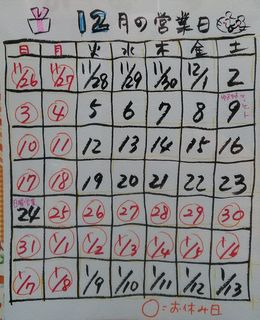 12月の営業日
日 月 火 水 木 金 土
11/26 11/27 11/28 11/29 11/30 12/1 2
3 4 5 6 7 8 9
10 11 12 13 14 15 16
17 18 19 20 21 22 23
24 25 26 27 28 29 30
31 1/1 1/2 1/3 1/4 1/5 1/6
1/7 1/8 1/9 1/10 1/11 1/12 1/13
○=お休み日